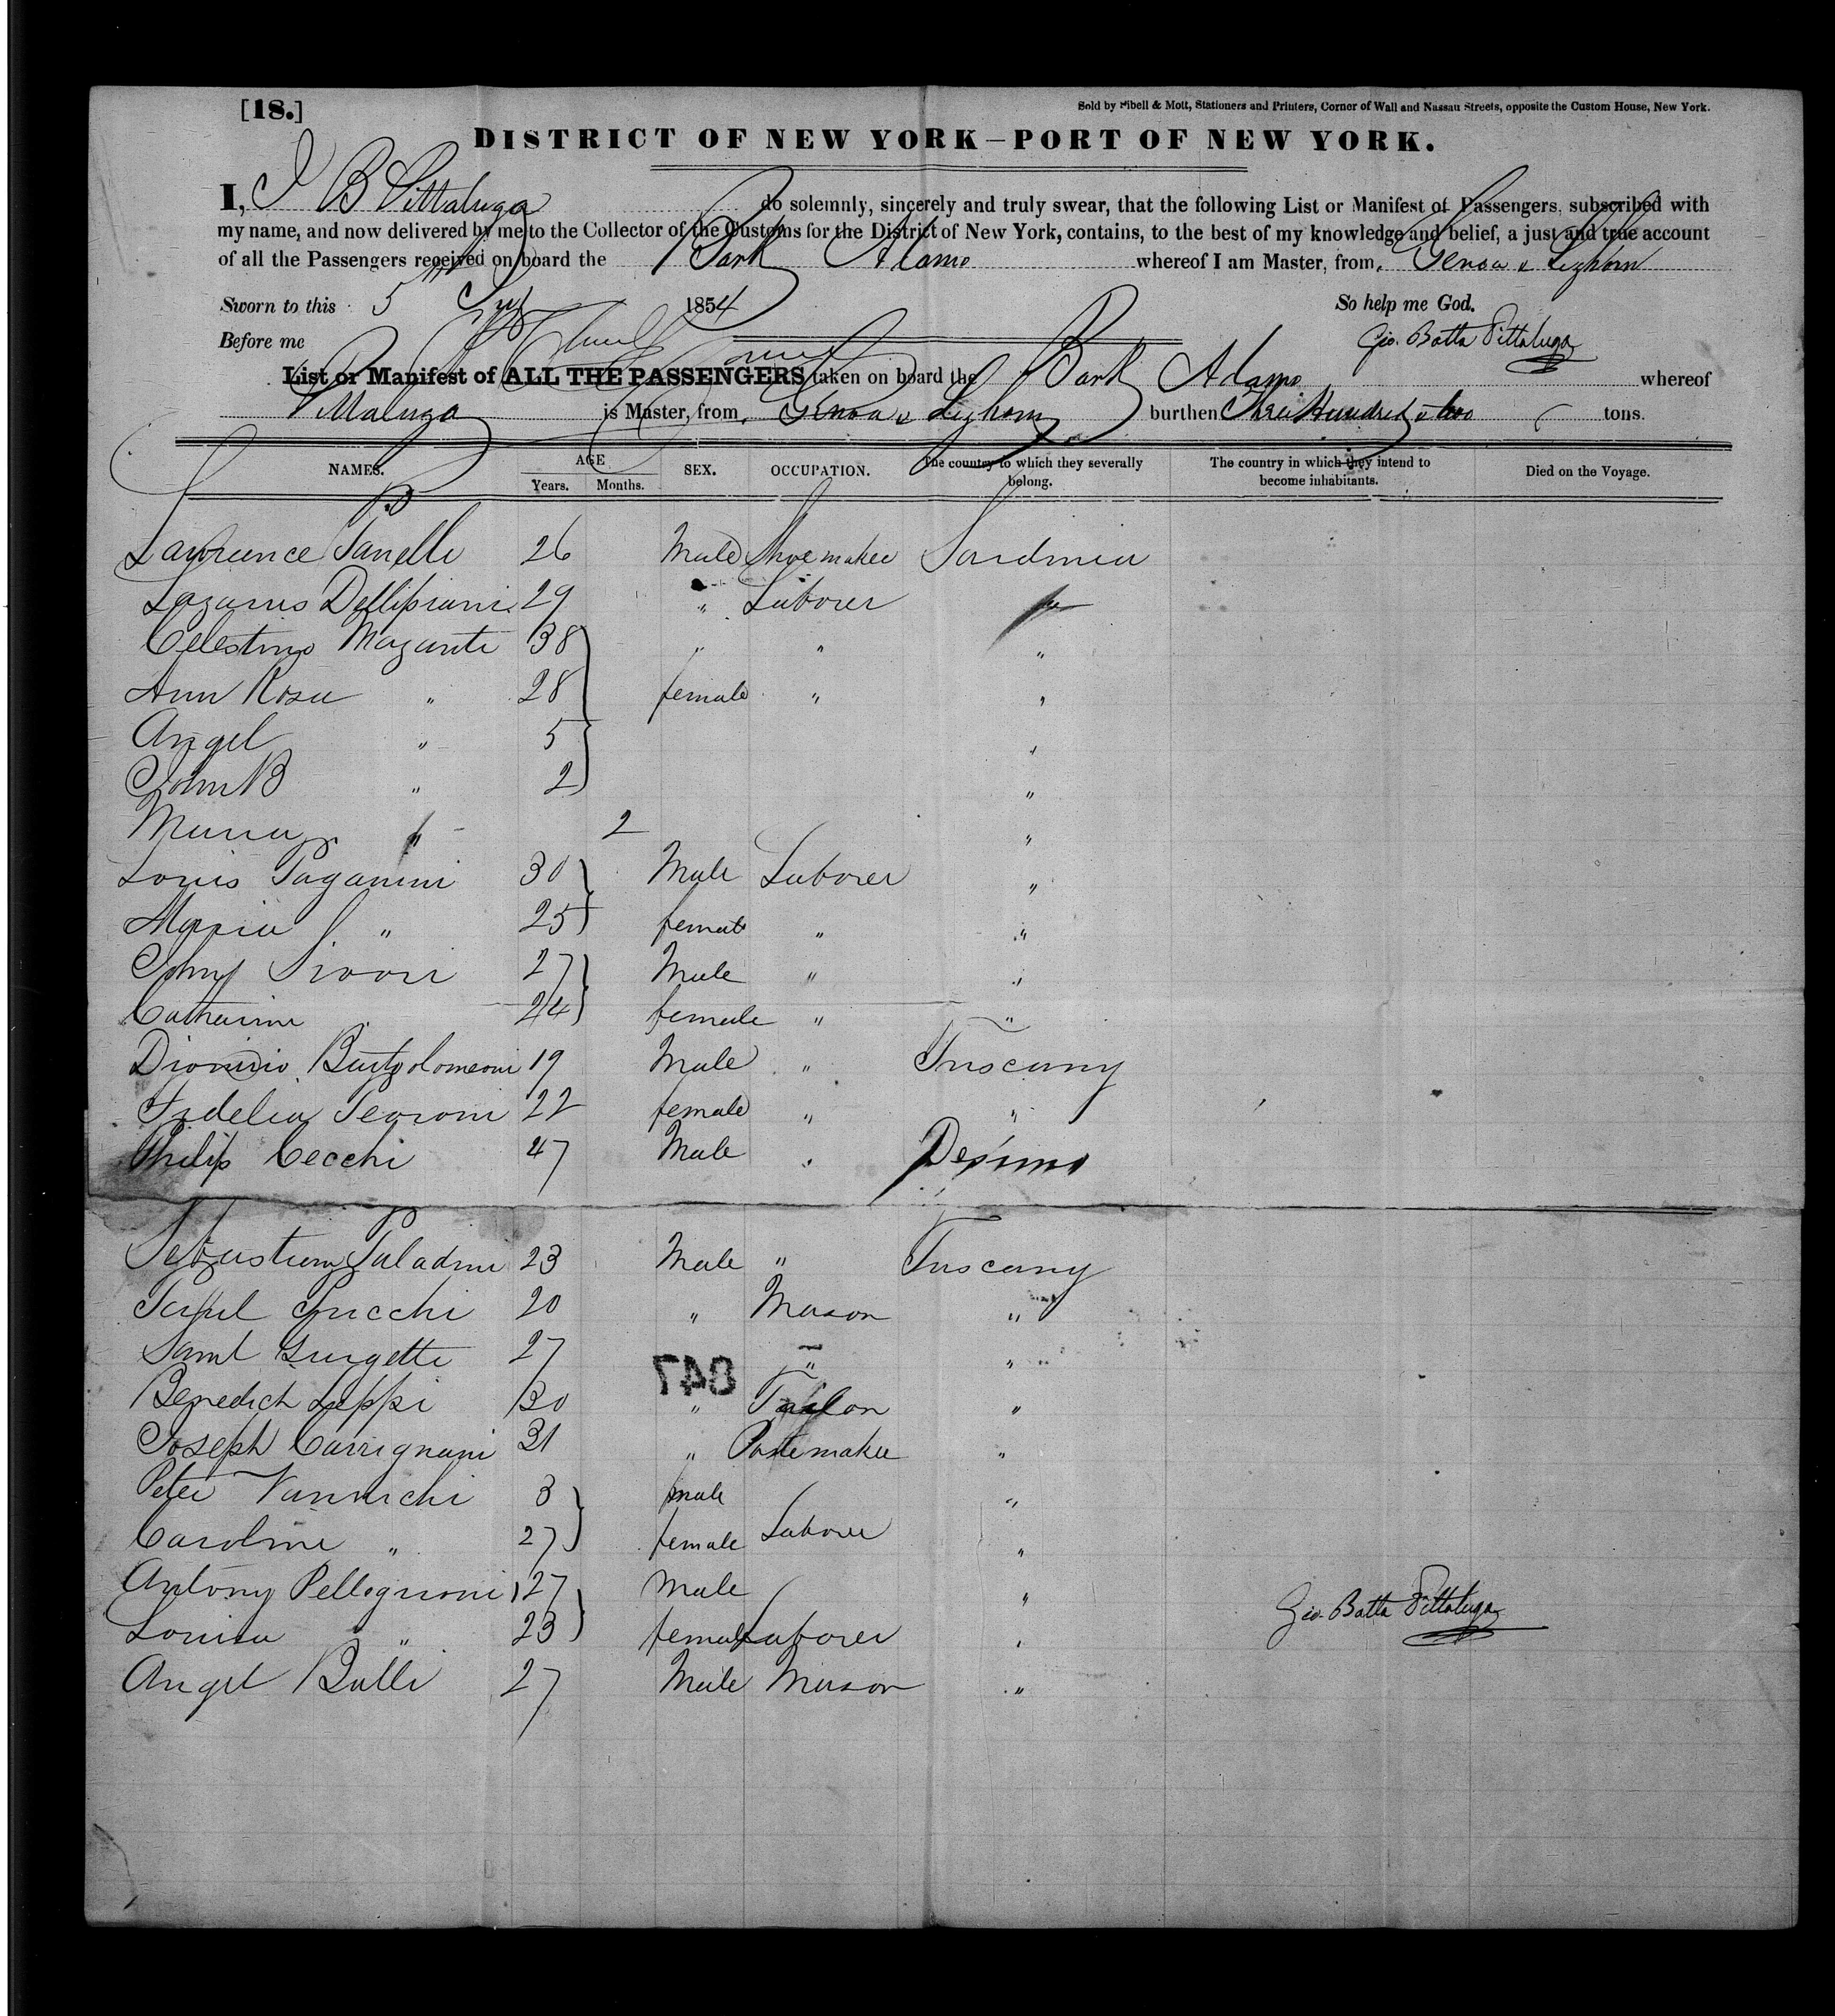 [18.]
Sold by Sibell & Mott, Stationers and Printers, Corner of Wall and Nassau Streets, opposite the Custom House, New York.
DISTRICT OF NEW YORK—PORT OF NEW YORK.
I, J B Pittaluga do solemnly, sincerely and truly swear, that the following List or Manifest of Passengers, subscribed with
my name, and now delivered by me to the Collector of the Customs for the District of New York, contains, to the best of my knowledge and belief, a just and true account
of all the Passengers received on board the Bark Adamo whereof I am Master, from Genoa & Leghorn
Sworn to this 5 1854 So help me God.
Before me Gio. Batta Pittaluga
List or Manifest of ALL THE PASSENGERS taken on board the Bark Adamo whereof
Pittaluga is Master, from Genoa & Leghorn burthen Three Hundred & two tons.
NAMES. AGE Years. Months. SEX. OCCUPATION. The country to which they severally belong. The country in which they intend to become inhabitants. Died on the Voyage.
Lawrence Panelli 26 Male Shoemaker Sardinia
Lazarus Dellipiani 29 " Laborer "
Celestino Mazanti 38 " " "
Ann Rosa " 28 female " "
Angel " 5 "
John B " 2 "
Maria " 2 "
Louis Paganini 30 Male Laborer "
Maria " 25 female " "
John Sivori 27 Male " "
Catharine 24 female " "
Dionisio Bartolomeoni 19 Male " Tuscany
Fidelia Pearoni 22 female " "
Philip Cecchi 47 Male "
Sebastian Paladini 23 Male " Tuscany
20 " Mason "
Saml Giurgetti 27 " "
Benedict Lippi 30 " "
Joseph Carrignani 31 " Pastemaker "
Peter Vannuchi 3 male "
Caroline " 27 female Laborer "
Antony Pellegrioni 27 Male "
Louisa " 23 female Laborer "
Gio. Batta Pittaluga
Angel Balli 27 Male Mason "
847